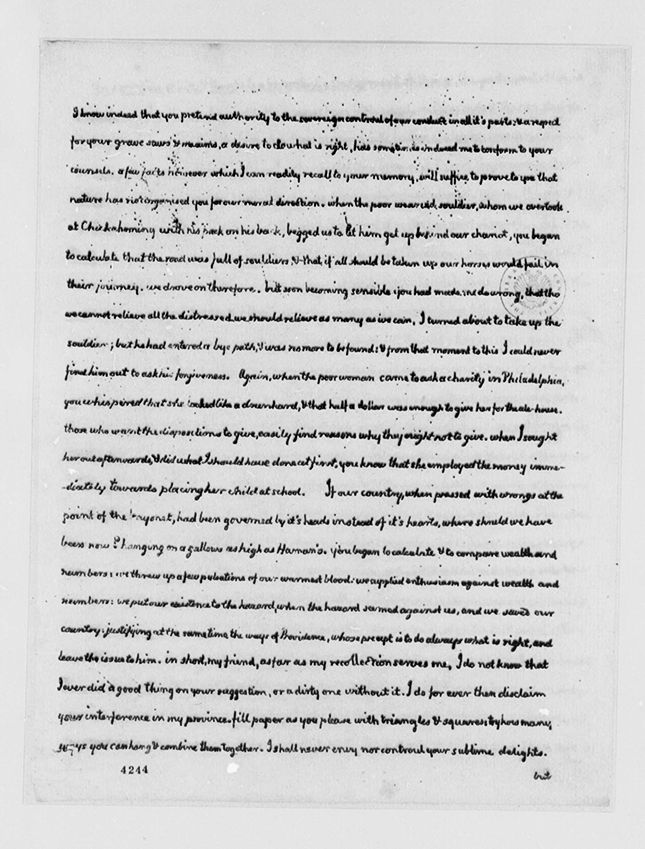 I know indeed that you pretend authority to the sovereign controul of our conduct in all it's parts: & a respect
for your grave saws & maxims, a desire to do what is right, has sometimes induced me to conform to your
counsels. a few facts however which I can readily recall to your memory, will suffice to prove to you that
nature has not organised you for our moral direction. when the poor wearied souldier, whom we overtook
at Chickahominy with his pack on his back, begged us to let him get up behind our chariot, you began
to calculate that the road was full of souldiers, & that if all should be taken up our horses would fail in
their journey. we drove on therefore. but soon becoming sensible you had made me do wrong, that tho
we cannot relieve all the distressed we should relieve as many as we can, I turned about to take up the
souldier; but he had entered a bye path, & was no more to be found: & from that moment to this I could never
find him out to ask his forgiveness. Again, when the poor woman came to ask a charity in Philadelphia,
you whispered that she looked like a drunkard, & that half a dollar was enough to give her for the ale-house.
those who want the dispositions to give, easily find reasons why they ought not to give. when I sought
her out afterwards, & did what I should have done at first, you know that she employed the money imme-
-diately towards placing her child at school. If our country, when pressed with wrongs at the
point of the bayonet, had been governed by it's heads instead of it's hearts, where should we have
been now? hanging on a gallows as high as Haman's. you began to calculate & to compare wealth and
numbers: we threw up a few pulsations of our warmest blood: we supplied enthusiasm against wealth and
numbers: we put our existence to the hazard, when the hazard seemed against us, and we saved our
country: justifying at the same time the ways of Providence, whose precept is to do always what is right, and
leave the issue to him. in short, my friend, as far as my recollection serves me, I do not know that
I ever did a good thing on your suggestion, or a dirty one without it. I do for ever then disclaim
your interference in my province. fill paper as you please with triangles & squares: try how many
ways you can hang & combine them together. I shall never envy nor controul your sublime delights.
4244
but